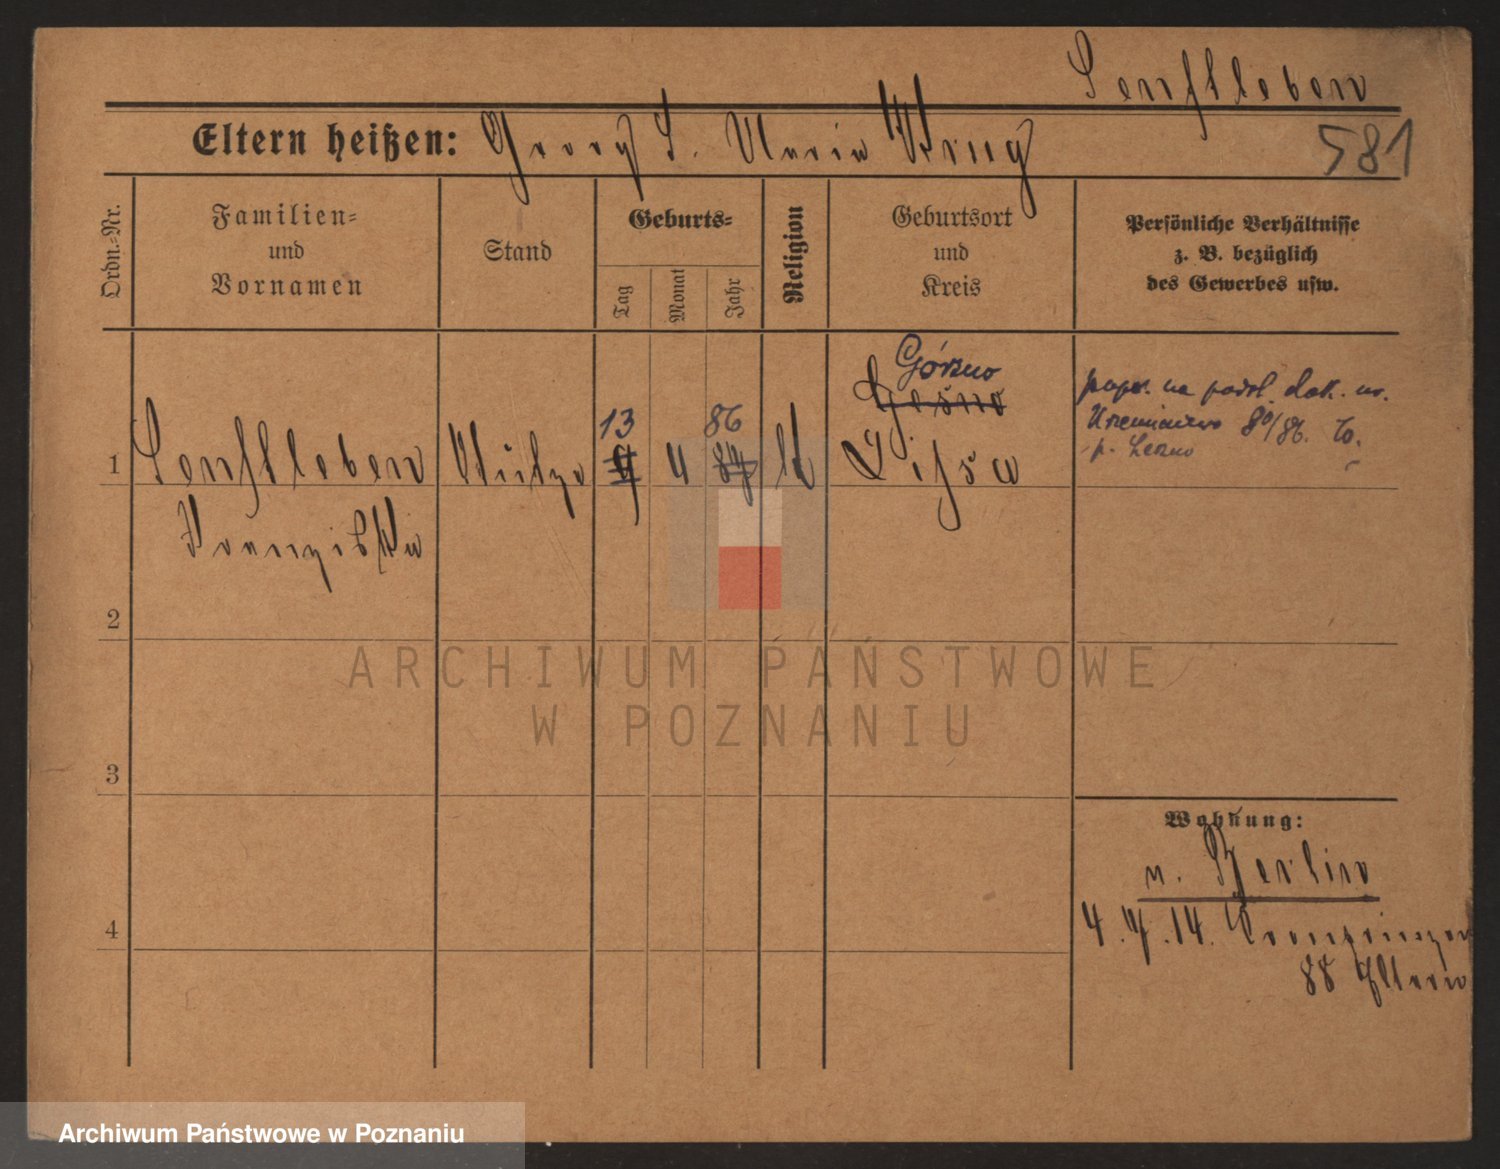 Senftleben
Eltern heißen: Georg S. Maria Krug
581
Ordn.=Nr.
Familien=
und
Vornamen
Stand
Geburts=
Tag
Monat
Jahr
Religion
Geburtsort
und
Kreis
Persönliche Verhältnisse
z. B. bezüglich
des Gewerbes usw.
1
Senftleben
Franziska
Stütze
13
4
86
87
k
Górzno
Gośno
Lissa
popr. na podst. dok. ur.
80/86.
p. Leszno
2
3
4
Wohnung:
n. Berlin
4.7.14. Kronprinzen
88 Eltern
ARCHIWUM PAŃSTWOWE
W POZNANIU
Archiwum Państwowe w Poznaniu